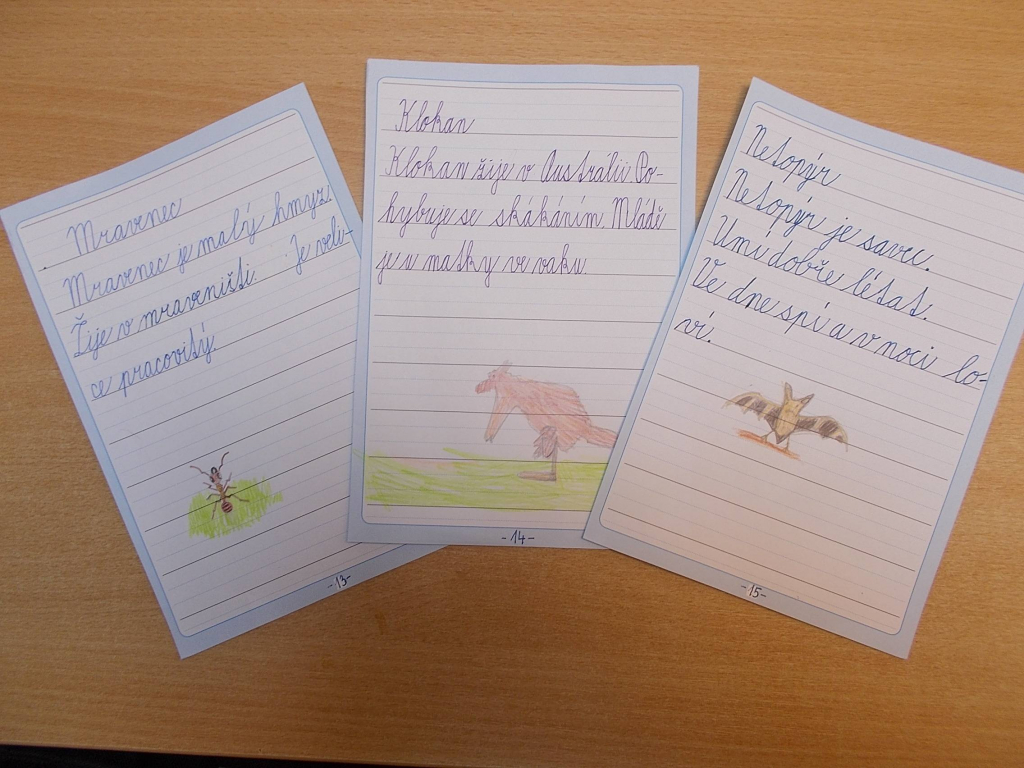 Mravenec
Mravenec je malý hmyz.
Žije v mraveništi. Je veli-
ce pracovitý.
-13-
Klokan
Klokan žije v Austrálii. Po-
hybuje se skákáním. Mládě
je u matky ve vaku.
-14-
Netopýr
Netopýr je savec.
Umí dobře létat.
Ve dne spí a v noci lo-
ví.
-15-